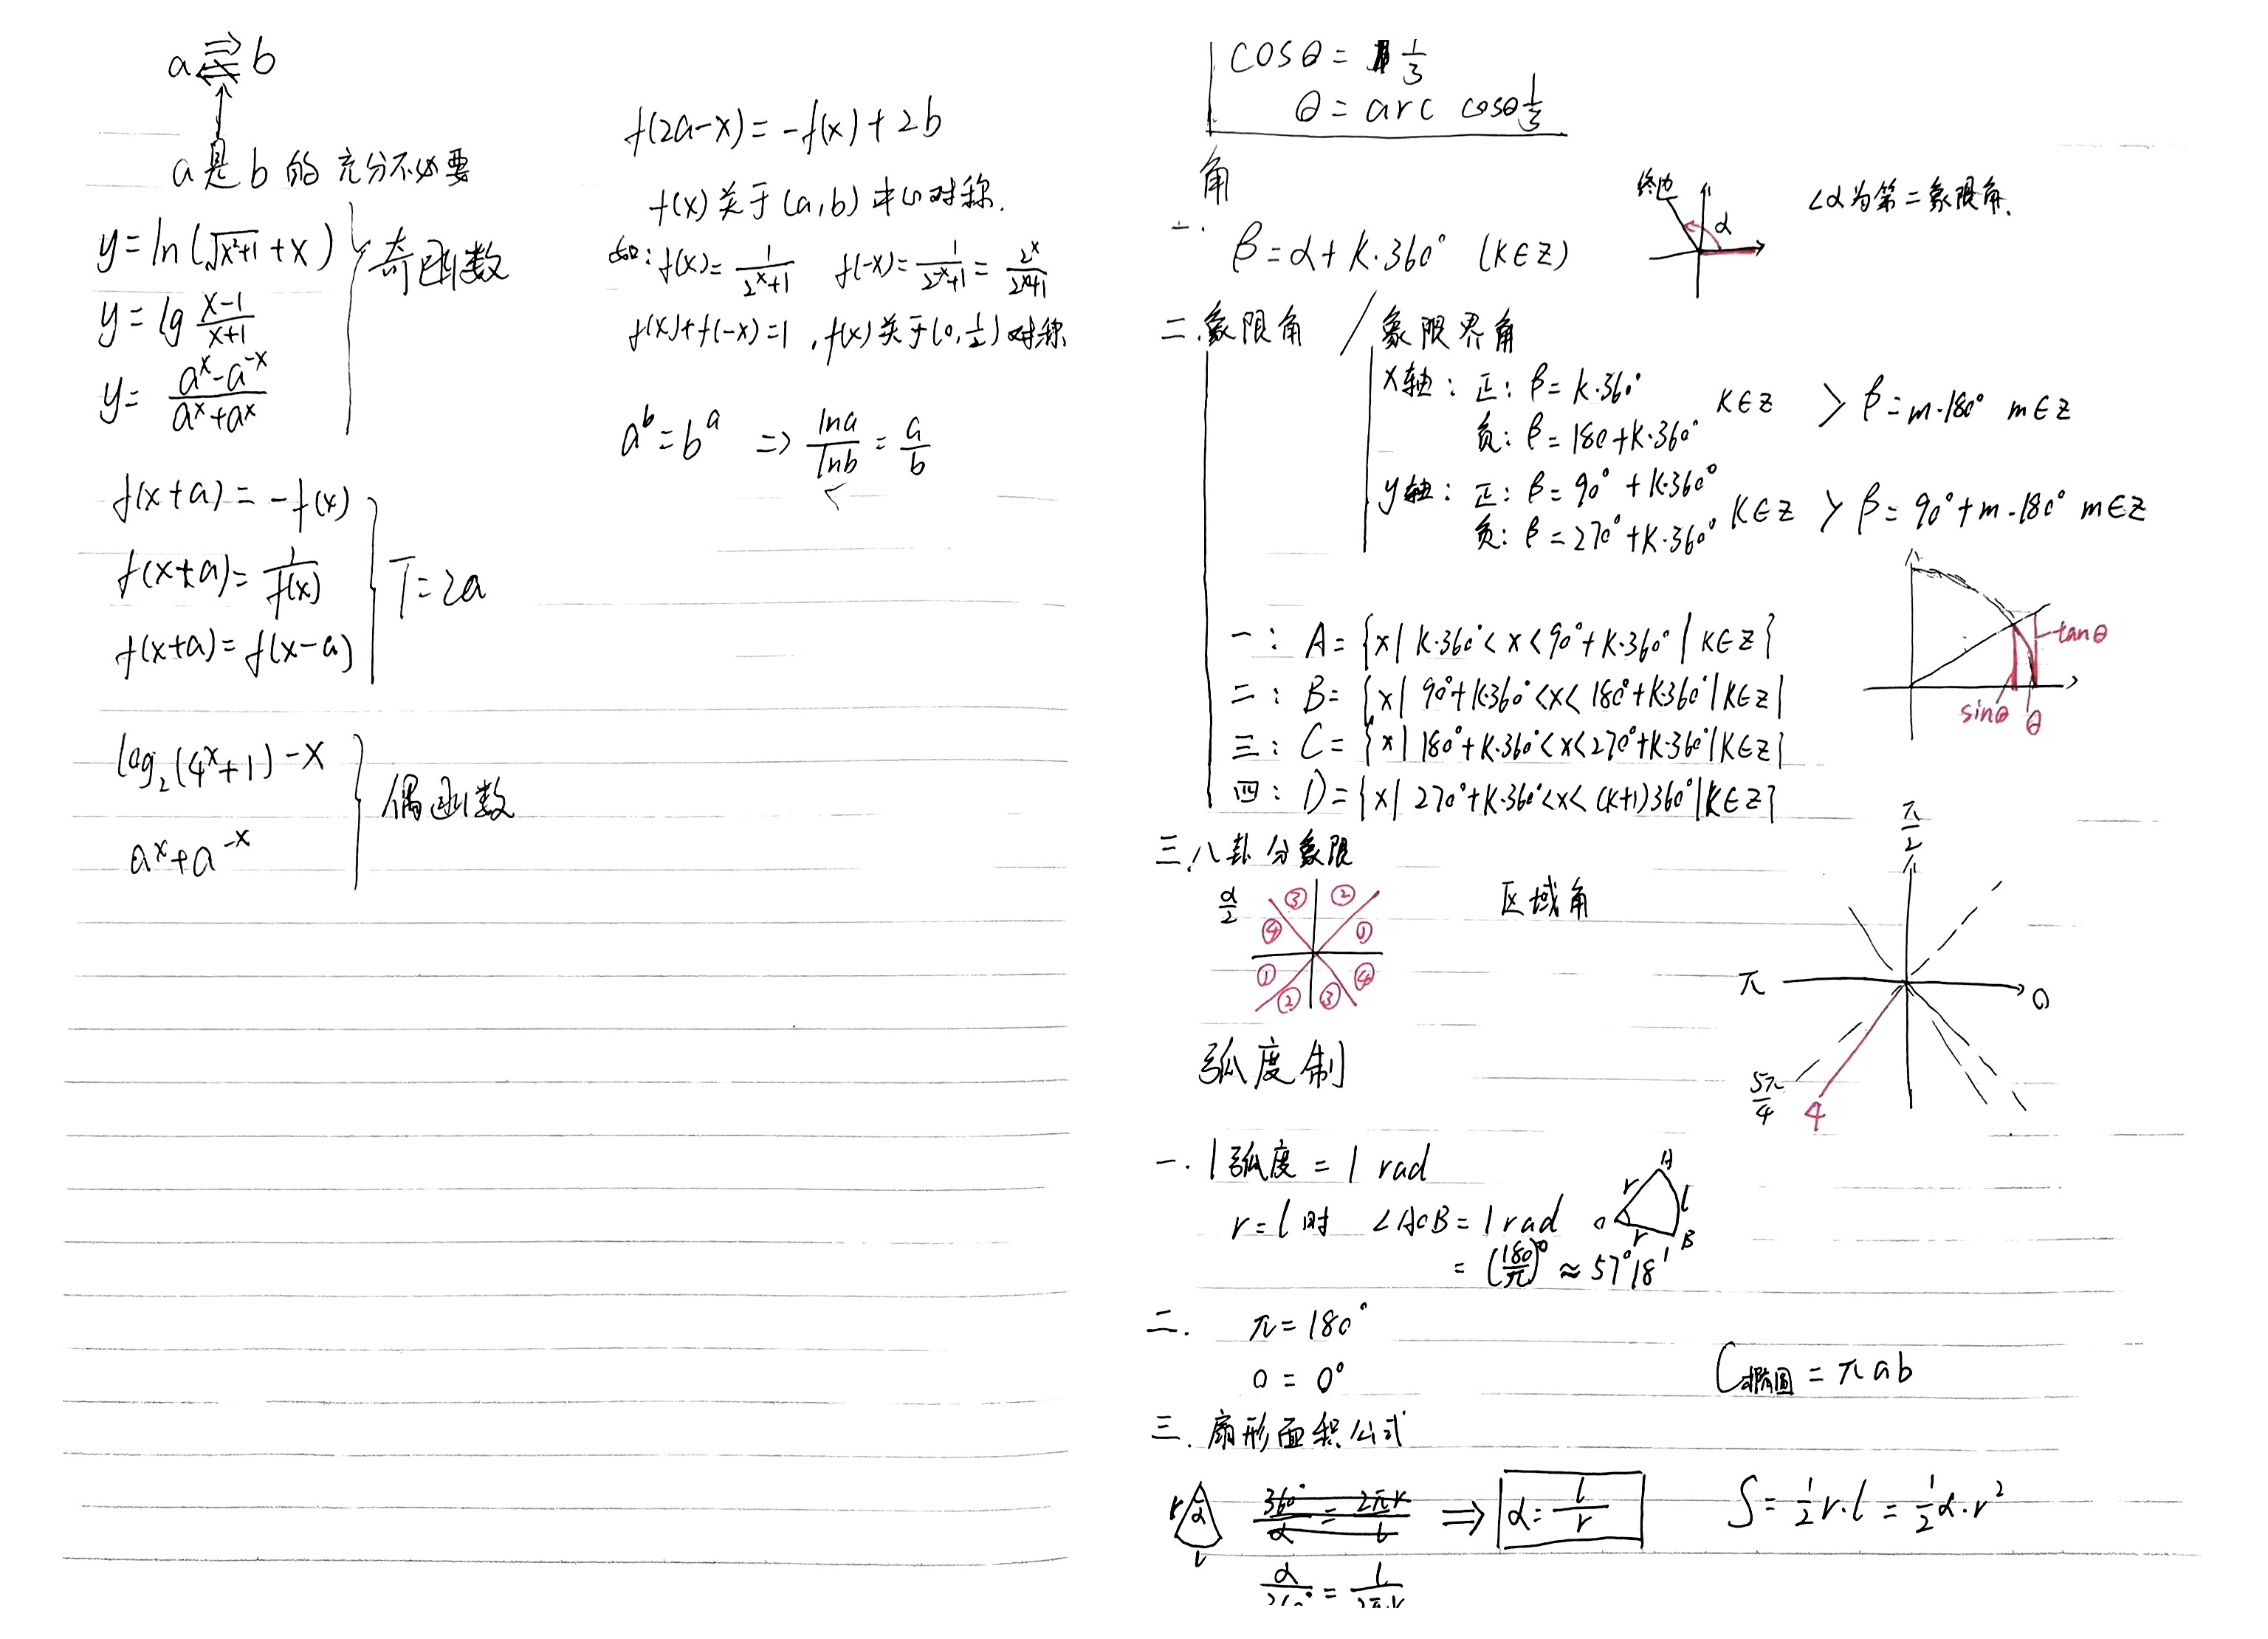 a ⇄ b
a是b的充分不必要
y=ln(√x²+1+x)
y=lg (x-1)/(x+1)
y=(aˣ-a⁻ˣ)/(aˣ+aˣ)
奇函数
f(x+a)=-f(x)
f(x+a)=1/f(x)
f(x+a)=f(x-a)
T=2a
log₂(4ˣ+1)-x
aˣ+a⁻ˣ
偶函数
f(2a-x)=-f(x)+2b
f(x)关于(a,b)中心对称.
如:f(x)=1/(2ˣ+1) f(-x)=1/(2⁻ˣ+1)=2ˣ/(2ˣ+1)
f(x)+f(-x)=1,f(x)关于(0,1/2)对称
aᵇ=bᵃ => lna/lnb=a/b
cosθ=1/3
θ=arc cosθ1/3
角
一. β=α+k·360° (k∈Z)
终边 α
∠α为第二象限角.
二.象限角 / 象限界角
x轴: 正: β=k·360°
负: β=180+k·360°
k∈Z > β=m·180° m∈Z
y轴: 正: β=90°+k·360°
负: β=270°+k·360°
k∈Z > β=90°+m·180° m∈Z
一: A={x| k·360°<x<90°+k·360°|k∈Z}
二: B={x| 90°+k·360°<x<180°+k·360°|k∈Z}
三: C={x| 180°+k·360°<x<270°+k·360°|k∈Z}
四: D={x| 270°+k·360°<x<(k+1)360°|k∈Z}
tanθ
sinθ θ
三.八卦分象限
α/2
③ ②
④ ①
① ④
② ③
区域角
π/2
π 0
5π/4 4
弧度制
一. 1弧度=1 rad
r=l时 ∠AOB=1rad
=(180/π)°≈57°18′
A
r l
O r B
二. π=180°
0=0°
C椭圆=πab
三.扇形面积公式
r α l
360°/α=2πr/l => α=l/r
S=1/2 r·l=1/2 α·r²
α/360°=l/2πr